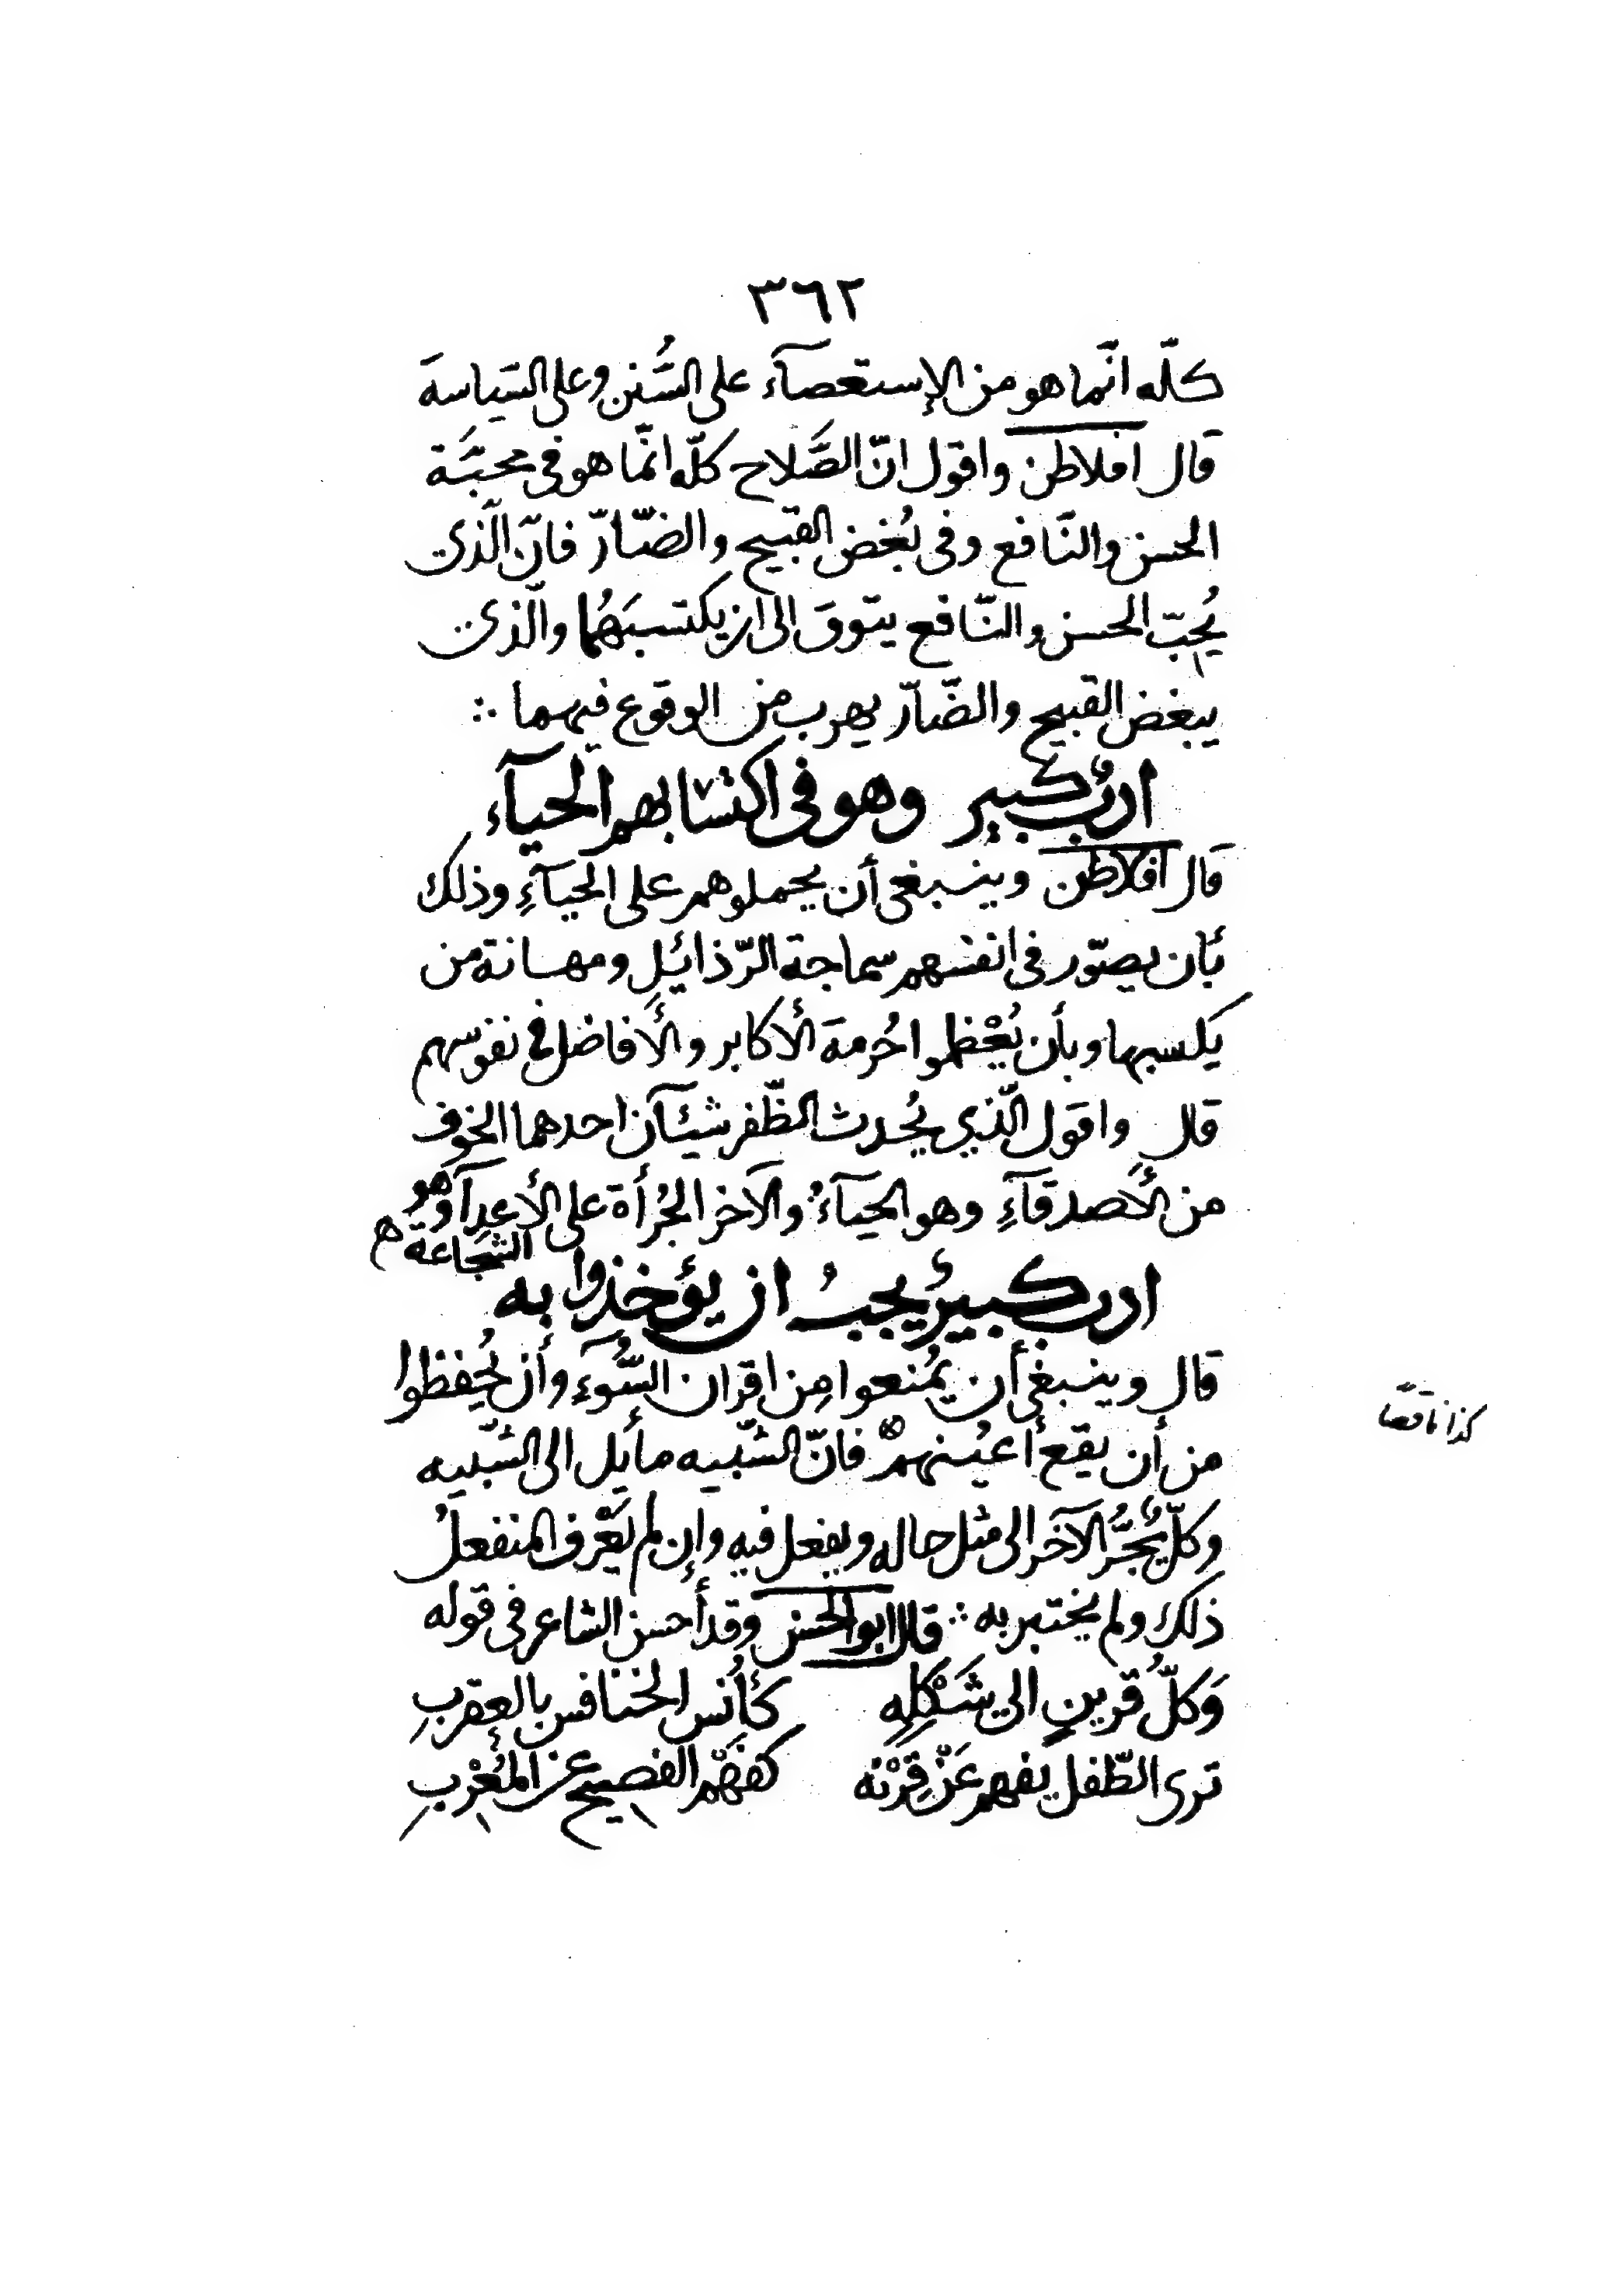 ٣٦٢
كلّه انّما هو من الإستعصآء على السُّنن وعلى السّياسة
قال افلاطن واقول انّ الصَّلاح كلّه انّما هو فى محبَّة
الحسن والنَّافع وفى بُغض القبيح والضّارّ فانّ الّذى
يُحبّ الحسن والنّافع يتوق الى ان يكتسبَهُما والّذى
يبغض القبيح والضّارّ يهرب من الوقوع فيهما ∴
ادبٌ كبير وهو فى اكتسابهم الحيآء
قال افلاطن وينبغى أن يحملوهم على الحيآءِ وذلك
بأن يصوّر فى انفسهم سماجة الرّذائل ومهانة من
يكسبها وبأن يُعْظموا حُرمة الأكابر والأفاضل فى نفوسهم
قال واقول الّذي يُحدث الظّفر شيئآن احدهما الخوف
من الأصدقآءِ وهو الحيآءُ والآخر الجُرأة على الأعدآ وهو
الشجاعة ه
ادبٌ كبيرٌ يجبُ ان يؤخذوا به
قال وينبغى أن يُمنعوا مِن اقران السُّوءِ وأن يُحفظوا
من أن يقع أعيُنهمْ فانّ الشّبيه مايل الى الشّبيه
وكلٌّ يُجرُّ الآخر الى مثل حاله ويفعل فيه وإن لم يَعْرف المنفعلُ
ذلك ولم يختبر به ∴ قال ابو الحسن وقد أحسن الشاعر فى قوله
وَكلُّ قرينٍ الى شَكْلِهِ كأُنس الخنافس بالعقربِ
ترى الطّفل يفهم عَنْ قِرْنه كفَهْم الفصيح عن المُعْرب
كذا ناقصًا